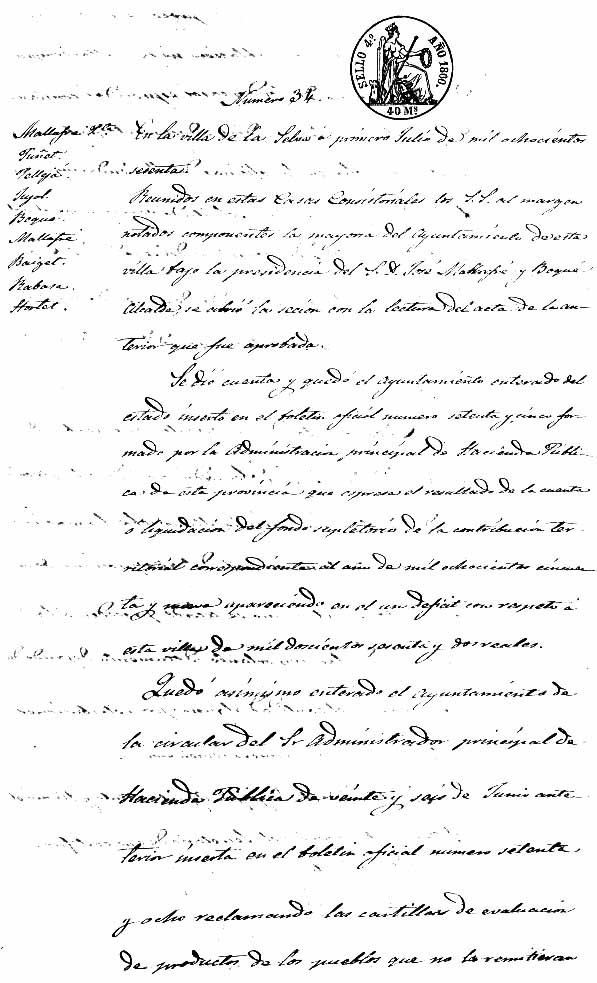 SELLO 4º AÑO 1860.
40 Ms
Numero 34.
Mallafré
Fuñot.
Pellejá.
Jujol.
Boqué.
Mallafré
Baiget.
Rabasa.
Hortet.
En la villa de la Selva a primero Julio de mil ochocientos
sesenta.
Reunidos en estas Casas Consistoriales los S.S. al margen
notados componentes la mayoria del Ayuntamiento de esta
villa bajo la presidencia del S. D. José Mallafré y Boqué
Alcalde, se abrió la secion con la lectura del acta de la an-
terior que fue aprobada.
Se dió cuenta y quedó el Ayuntamiento enterado del
estado inserto en el boletin oficial numero setenta y cinco for-
mado por la Administracion principal de Hacienda Públi-
ca de esta provincia que espresa el resultado de la cuenta
ó liquidacion del fondo supletorio de la contribucion ter-
ritorial correspondiente al año de mil ochocientos cincuen
ta y nueve apareciendo en el un deficit con respeto á
esta villa de mil docientos sesenta y dos reales.
Quedó asimismo enterado el Ayuntamiento de
la circular del Sr Administrador principal de
Hacienda Pública de veinte y seis de Junio ante-
terior inserta en el boletin oficial numero setenta
y ocho reclamando las cartillas de evaluacion
de productos de los pueblos que no la remitieran